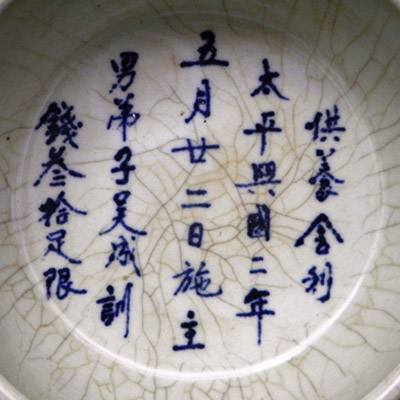 供養舍利
太平興國二年
五月廿二日施主
男弟子吴成訓
錢叁拾足限